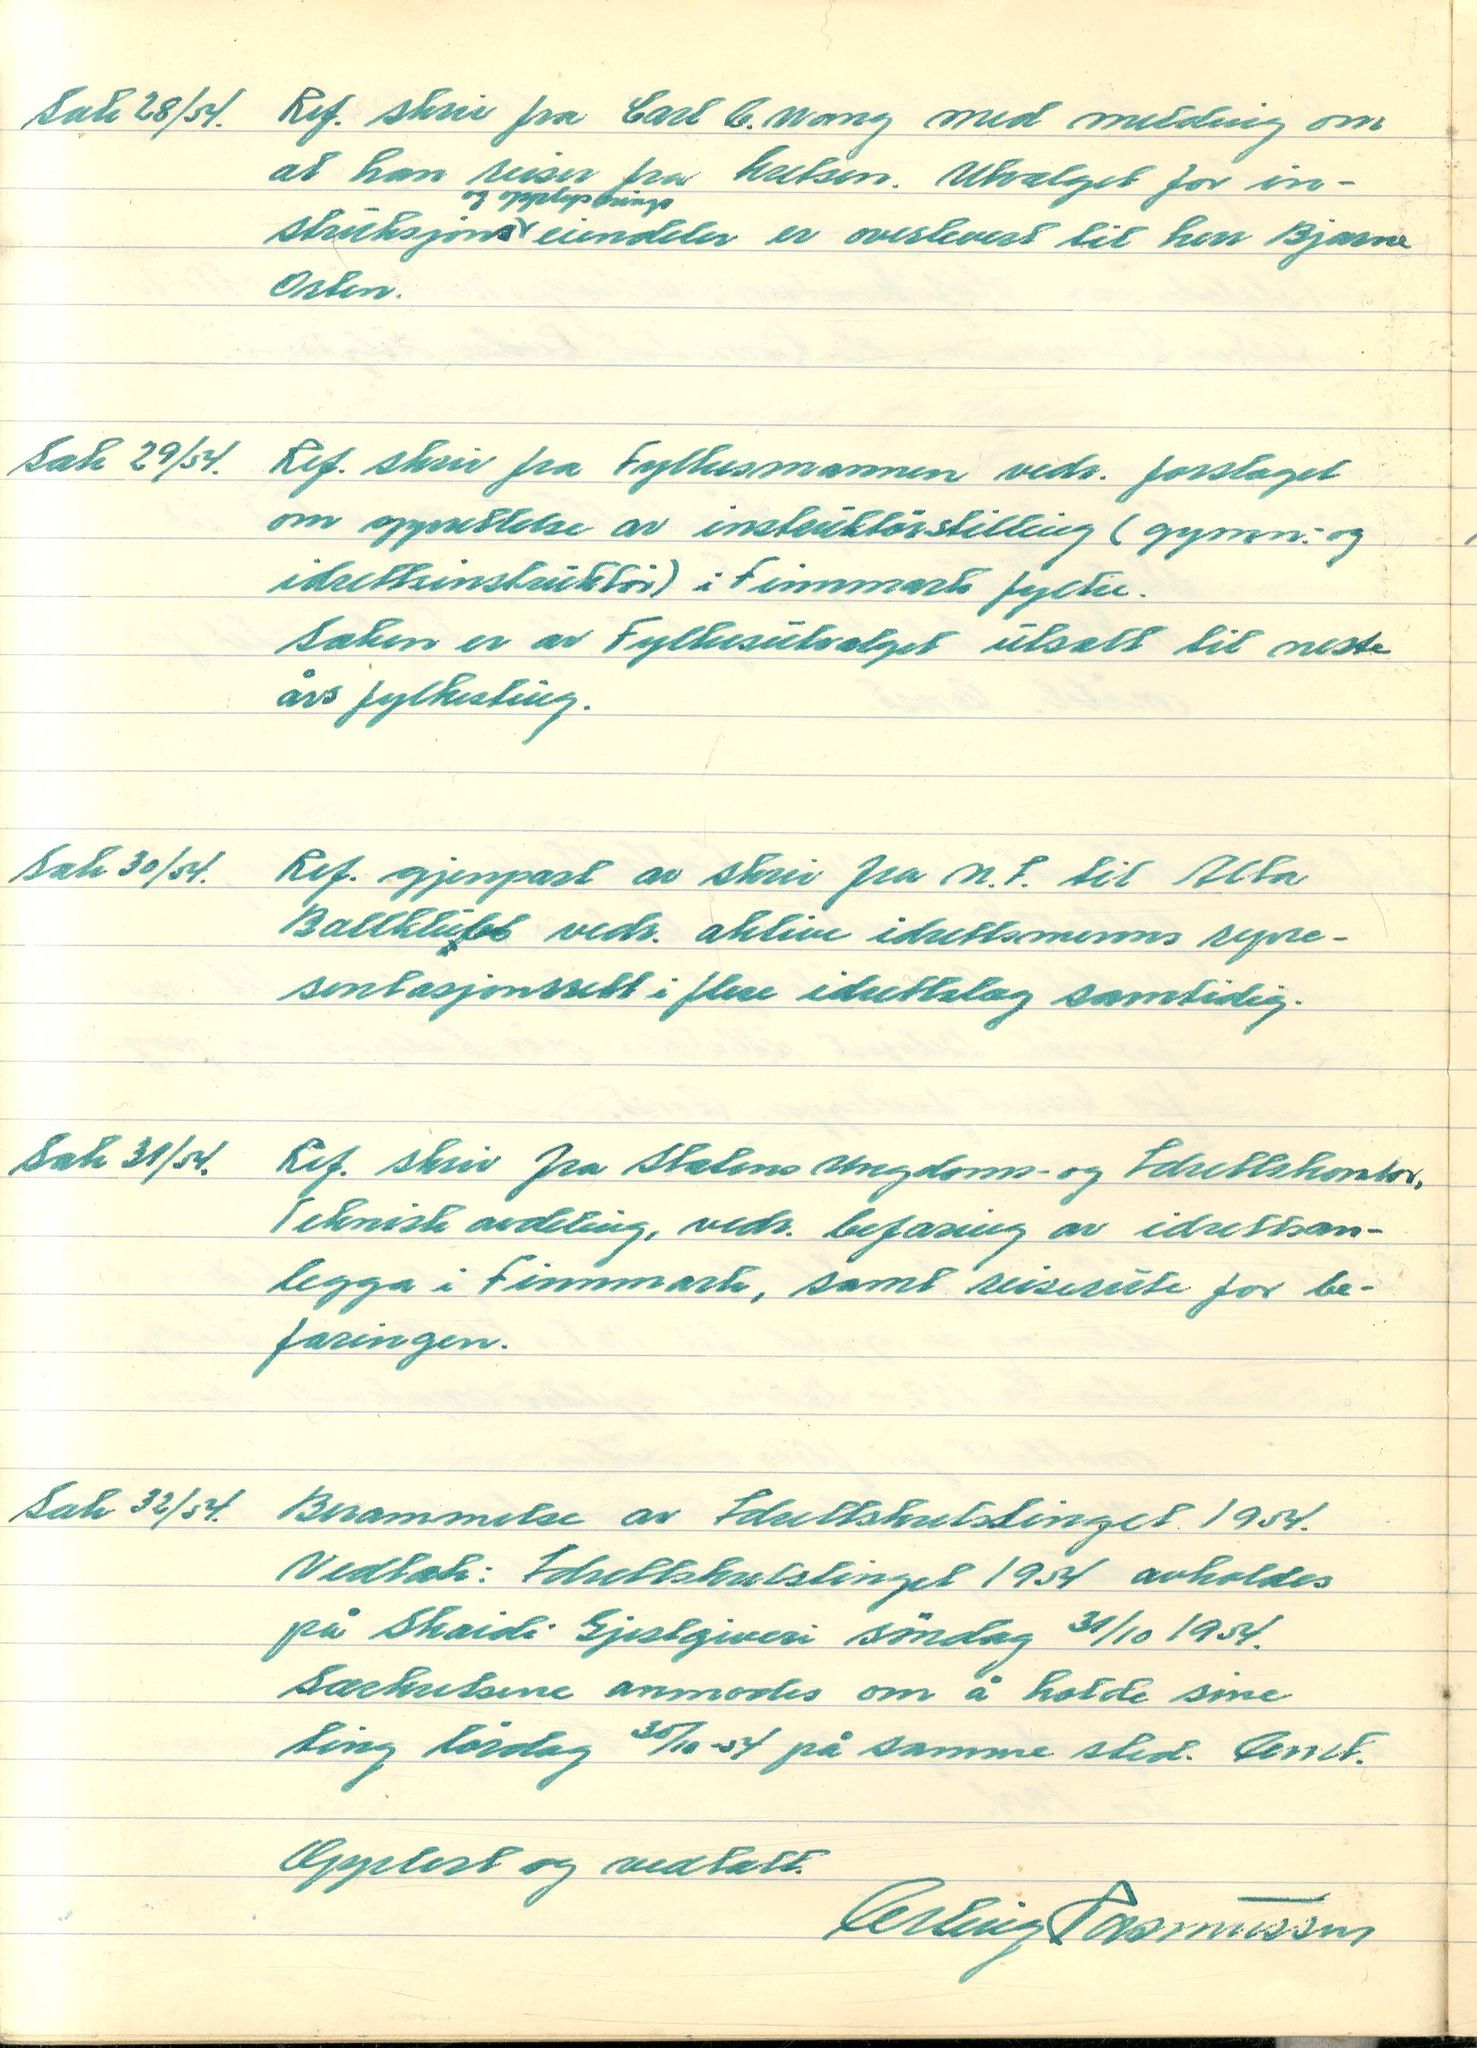 Sak 28/54. Ref. skriv fra Carl C. Wang med melding om
at han reiser fra kretsen. Utvalget for in-
og opplysnings
struksjons eiendeler er overlevert til herr Bjarne
Osten.
Sak 29/54. Ref. skriv fra Fylkesmannen vedr. forslaget
om opprettelse av instruktörstilling (gymn.- og
idrettsinstruktör) i Finnmark fylke.
Saken er av Fylkesutvalget utsatt til neste
års fylkesting.
Sak 30/54. Ref. gjenpart av skriv fra N.F. til Alta
Ballklubb vedr. aktive idrettsmenns repre-
sentasjonsrett i flere idrettslag samtidig.
Sak 31/54. Ref. skriv fra Statens Ungdoms- og Idrettskontor,
Teknisk avdeling, vedr. befaring av idrettsan-
legga i Finnmark, samt reiserute for be-
faringen.
Sak 32/54. Berammelse av Idrettskretstinget 1954.
Vedtak: Idrettskretstinget 1954 avholdes
på Skaidi Gjestgiveri söndag 31/10 1954.
Særkretsene anmodes om å holde sine
ting lördag 30/10-54 på samme sted. Enst.
Opplest og vedtatt.
Erling Rasmussen